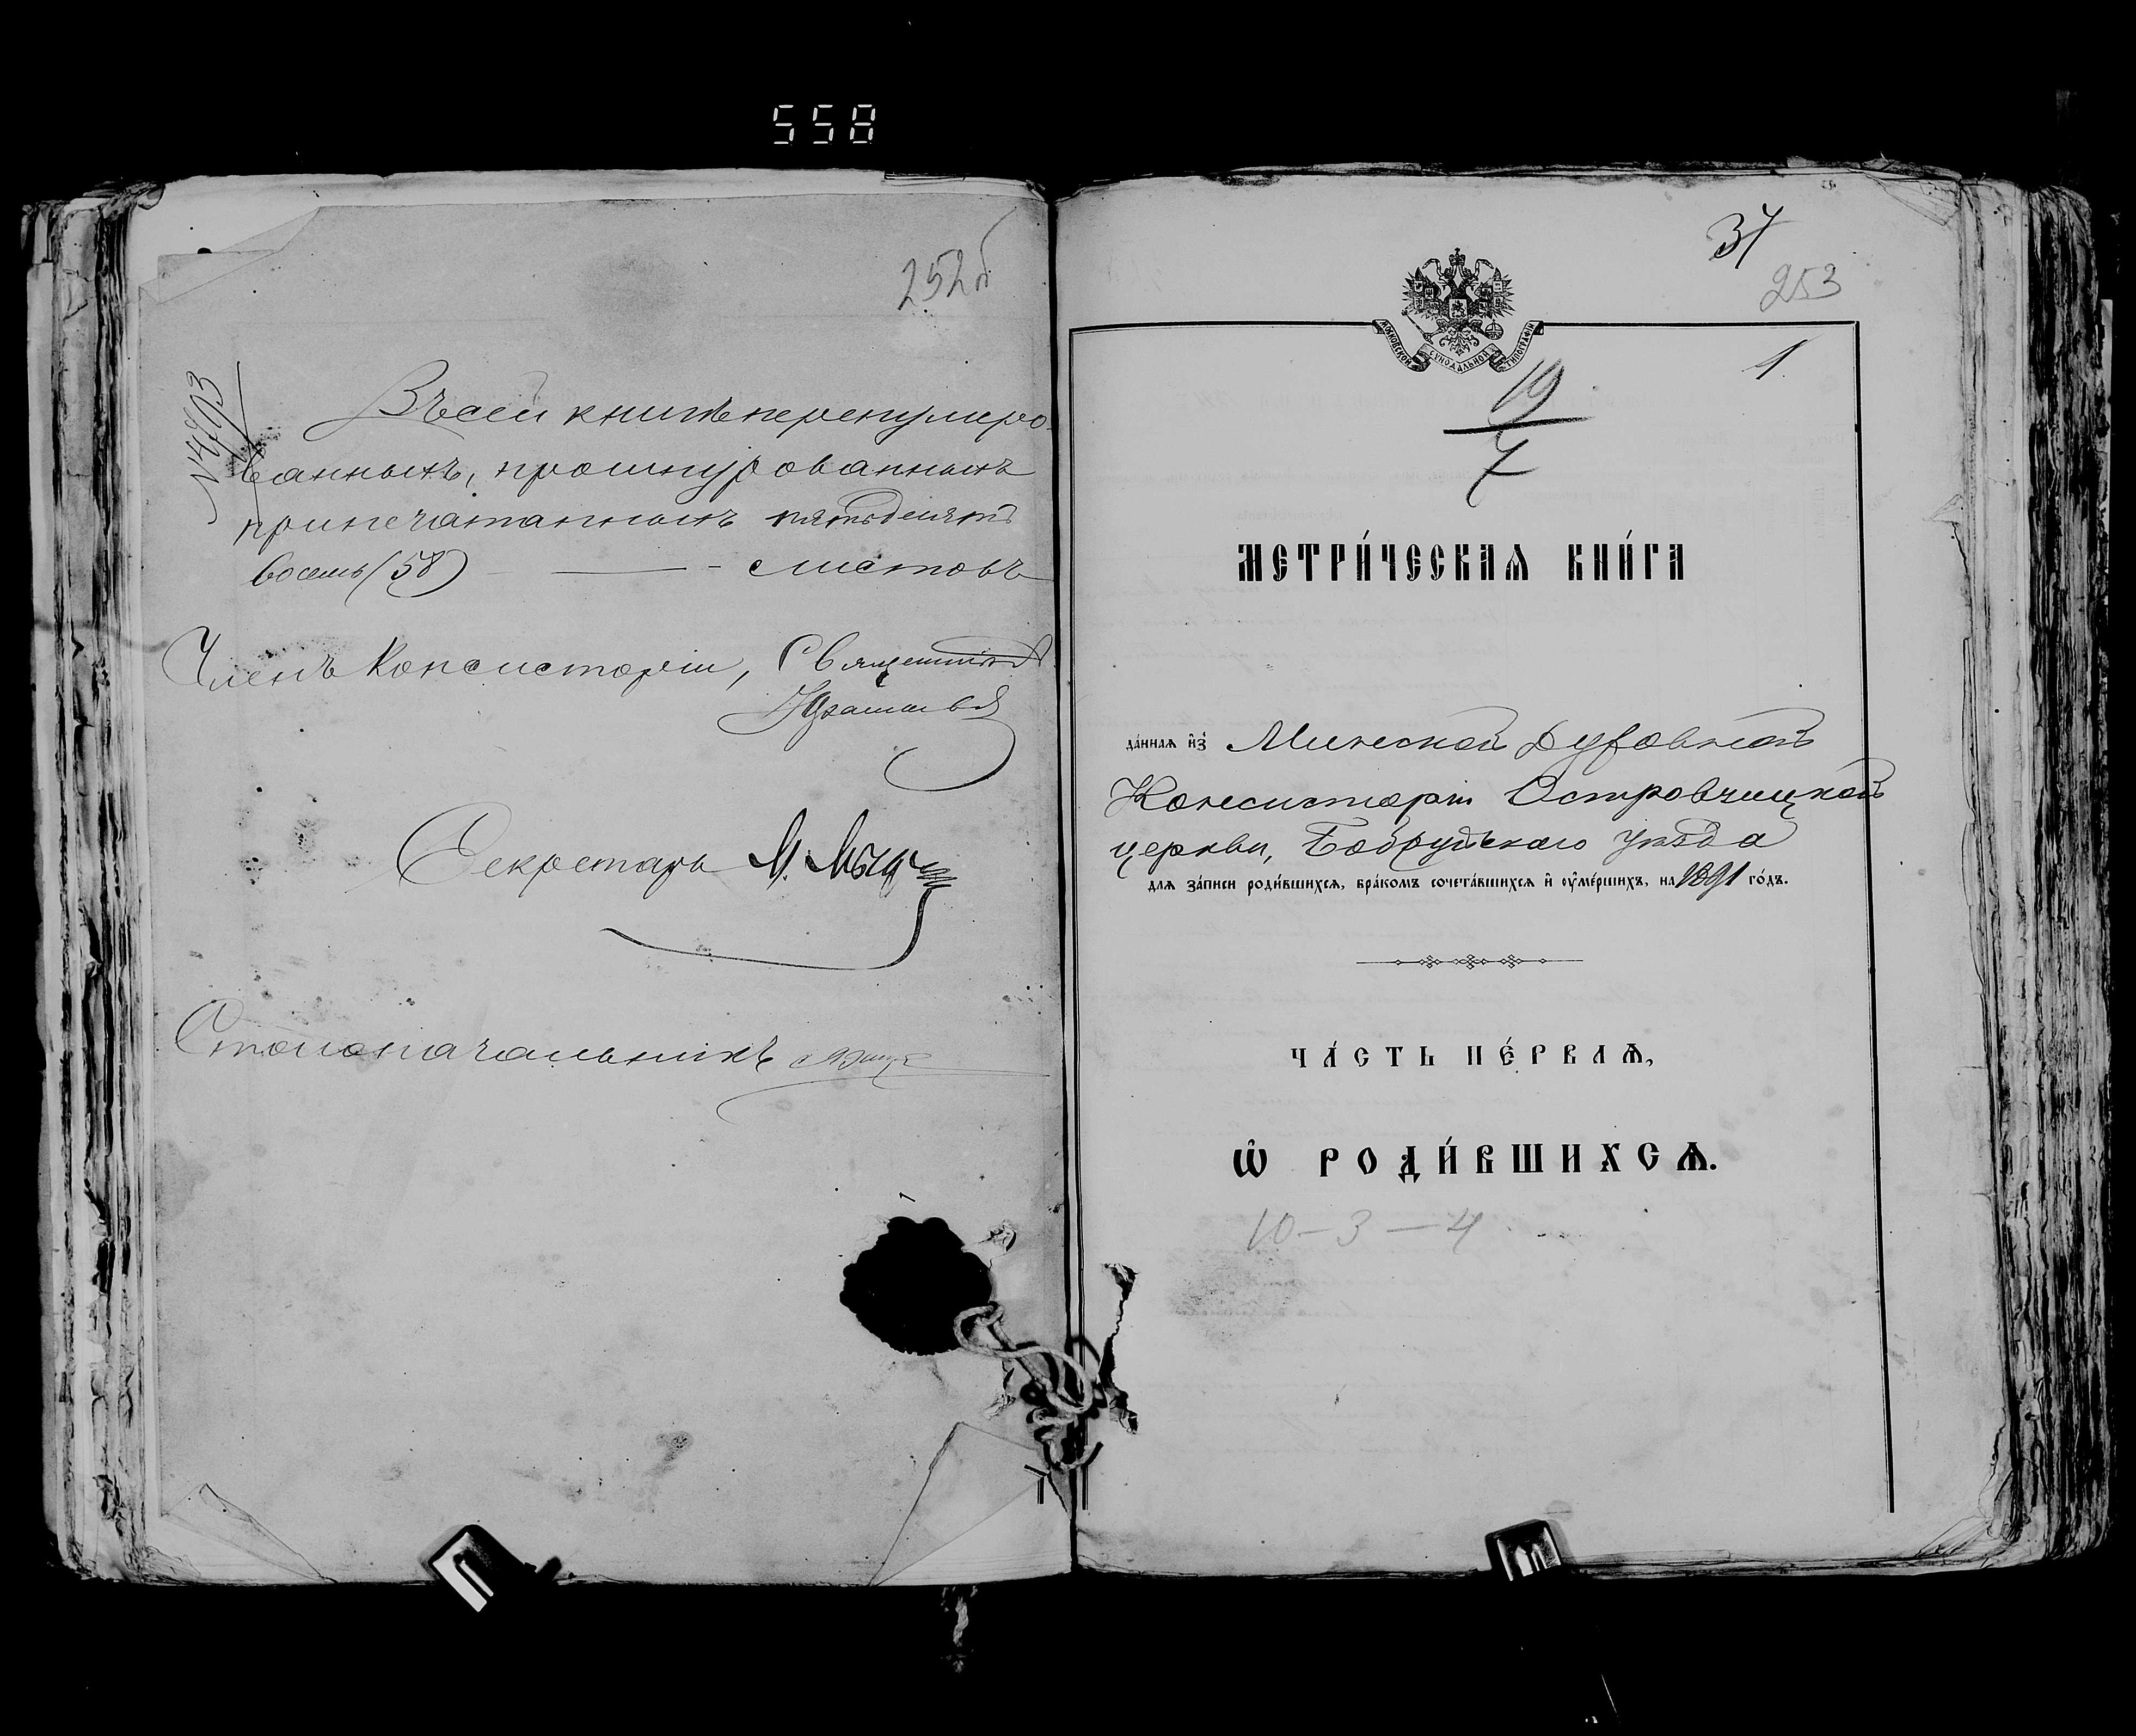 558
252б
N 4703
Въ сей книгѣ перенумеро-
ванныхъ, прошнурованныхъ
припечатанныхъ пятьдесятъ
восемь (58) листовъ
Членъ Консисторіи, Священникъ
Секретарь М.
Столоначальникъ
37
253
МОСКОВСКОЙ СѴНОДАЛЬНОЙ ТИПОГРАФІИ
1
19
7
МЕТРИ́ЧЕСКАѦ КНИ́ГА
да́ннаѧ и҆з̾ Минской Духовной
Консисторіи Островчицкой
церкви, Бобруйскаго уѣзда
длѧ за́писи роди́вшихсѧ, бра́комъ сочета́вшихсѧ и҆ оу҆ме́ршихъ, на 1891 го́дъ.
ЧА́СТЬ ПЕ́РВАѦ,
Ѡ҆ РОДИ́ВШИХСѦ.
10 - 3 - 4